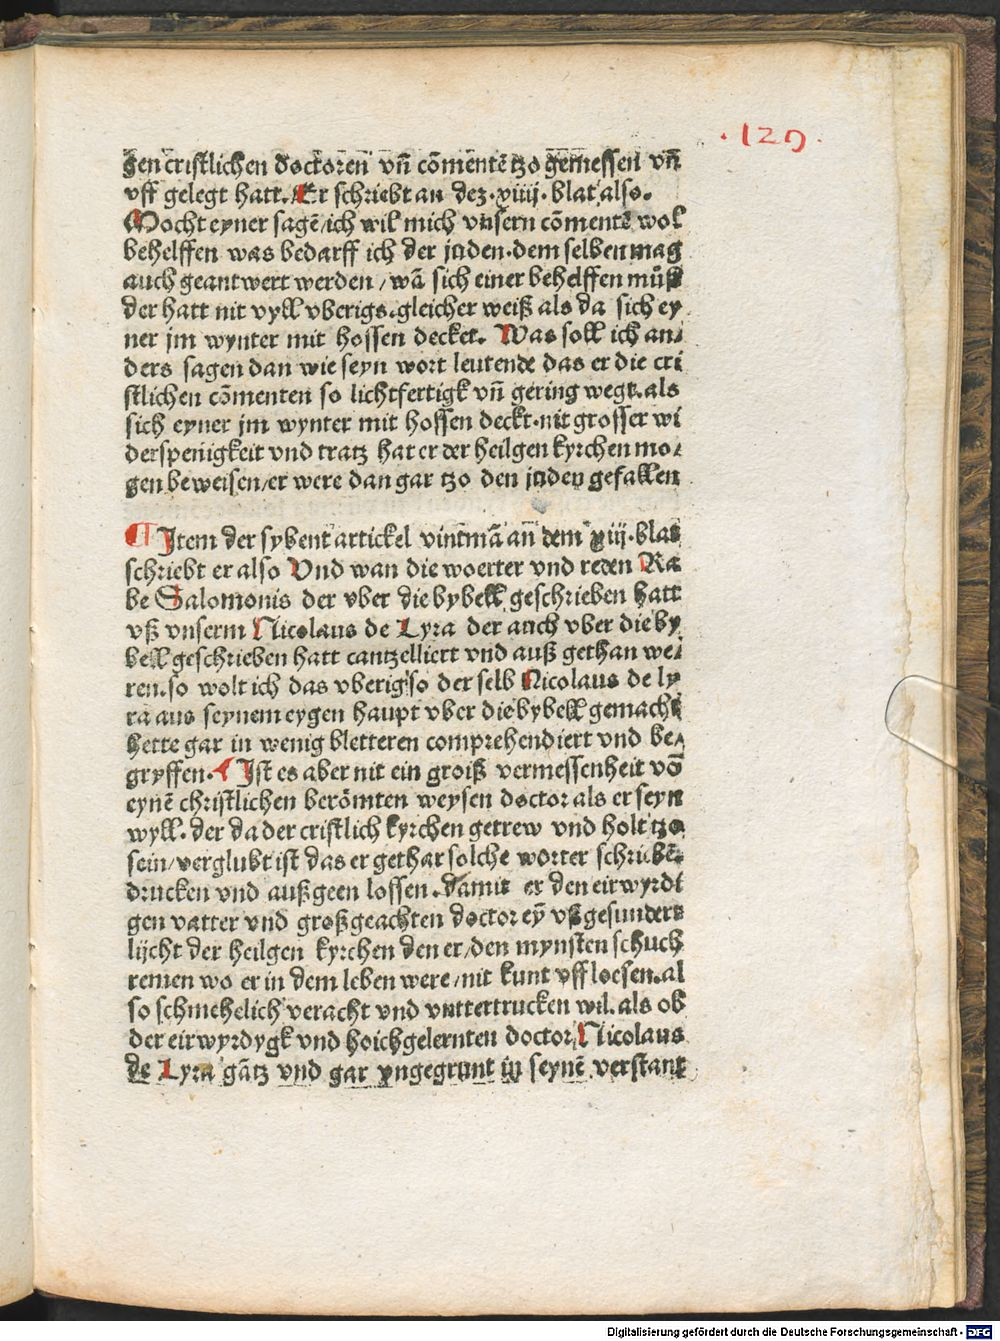 .129.
gen cristlichen doctoren vñ cōmentē tzo gemessen vñ
vff gelegt hatt. Er schriebt an dez .xiiij. blat also.
Mocht eyner sagē/ich wil mich vnsern cōmentē wol
behelffen was bedarff ich der juden.dem selben mag
auch geantwert werden/wā sich einer behelffen müß
der hatt nit vyll vberigs.gleicher weiß als da sich ey
ner jm wynter mit hossen decket. Was soll ich an/
ders sagen dan wie seyn wort leutende das er die cri
stlichen cōmenten so lichtfertigk vñ gering wegt.als
sich eyner jm wynter mit hossen deckt.nit grosser wi
derspenigkeit vnd tratz hat er der heilgen kyrchen mo/
gen beweisen/er were dan gar tzo den juden gefallen
¶ Jtem der sybent artickel vintmā an dem xiij.blat
schriebt er also Vnd wan die woerter vnd reden Ra
be Salomonis der vber die bybell geschrieben hatt
vß vnserm Nicolaus de Lyra der auch vber die by
bell geschrieben hatt cantzelliert vnd auß gethan we/
ren.so wolt ich das vberig so der selb Nicolaus de ly
ra aus seynem eygen haupt vber die bybell gemacht
hette gar in wenig bletteren comprehendiert vnd be/
gryffen. ¶ Jst es aber nit ein groiß vermessenheit vō
eynē christlichen berōmten weysen doctor als er seyn
wyll. der da der cristlich kyrchen getrew vnd holt tzo
sein/verglubt ist das er gethar solche worter schribē.
drucken vnd außgeen lossen.damit er den eirwyrdi
gen vatter vnd großgeachten doctor eȳ vßgesundert
lijcht der heilgen kyrchen den er/den mynsten schuch
remen wo er in dem leben were/nit kunt vff loesen.al
so schmehelich veracht vnd vnttertrucken wil.als ob
der eirwyrdygk vnd hoichgelernten doctor Nicolaus
de Lyra gātz vnd gar vngegrunt in seynē verstant
Digitalisierung gefördert durch die Deutsche Forschungsgemeinschaft - DFG